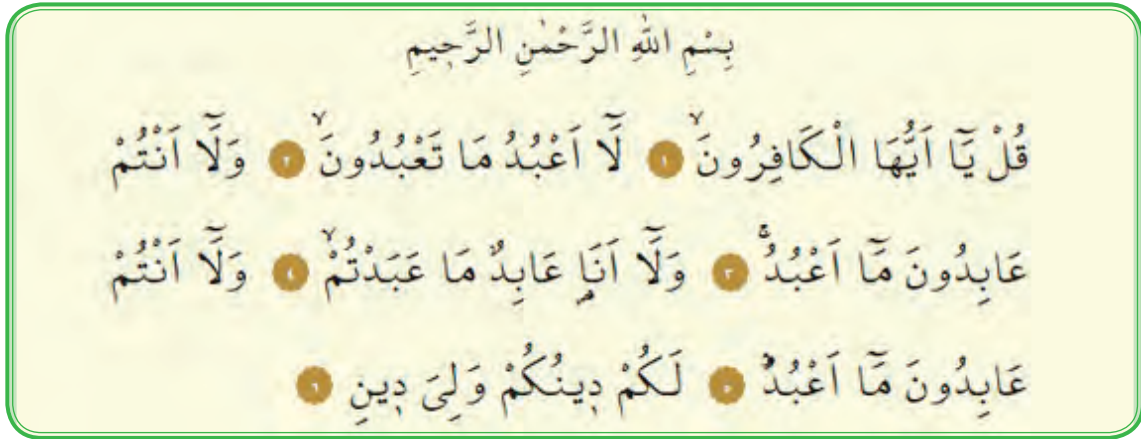 بِسْمِ اللّٰهِ الرَّحْمٰنِ الرَّح۪يمِ
قُلْ يَٓا اَيُّهَا الْكَافِرُونَۙ ١ لَٓا اَعْبُدُ مَا تَعْبُدُونَۙ ٢ وَلَٓا اَنْتُمْ
عَابِدُونَ مَٓا اَعْبُدُۚ ٣ وَلَٓا اَنَا۬ عَابِدٌ مَا عَبَدْتُمْۙ ٤ وَلَٓا اَنْتُمْ
عَابِدُونَ مَٓا اَعْبُدُۜ ٥ لَكُمْ د۪ينُكُمْ وَلِيَ د۪ينِ ٦